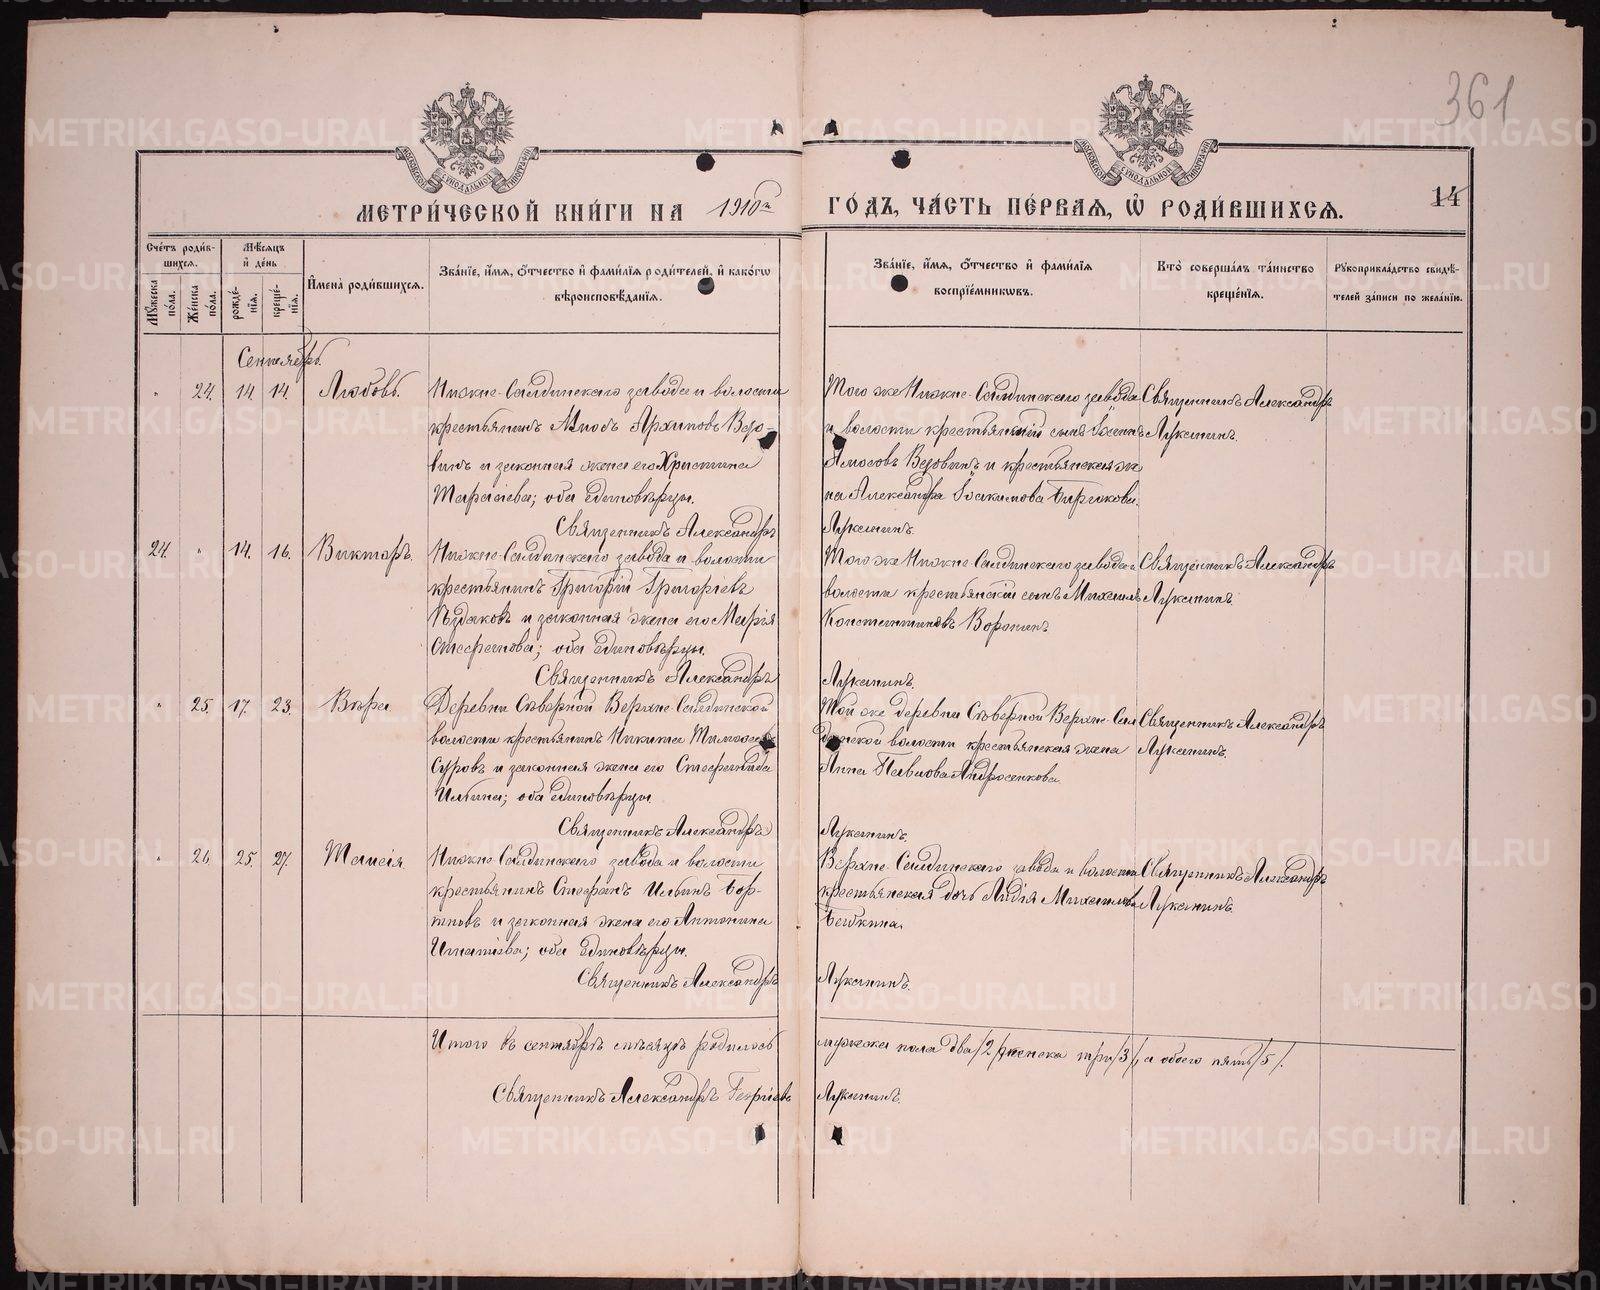 361
МЕТРИ́ЧЕСКОЙ КНИ́ГИ НА 1910й ГО́ДЪ, ЧА́СТЬ ПЕ́РВАЯ, Ѡ РОДИ́ВШИХСЯ.
14
Сче́тъ роди́в-
шихся.
Мѣ́сяцъ
и҆ де́нь
Му́жеска
по́ла.
Же́нска
по́ла.
рожде́-
нїя.
креще́-
нїя.
И҆мена̀ роди́вшихся.
Зва́нїе, и҆́мя, ѻ҆́тчество и҆ фами́лїя роди́телей, и҆ како́гѡ
вѣроисповѣ́данїя.
Зва́нїе, и҆́мя, ѻ҆́тчество и҆ фами́лїя
воспрїе́мникѡвъ.
Кто̀ соверша́лъ та́инство
креще́нїя.
Рꙋкоприкла́дство свидѣ́-
телей за́писи по жела́нїю.
Сентябрь.
" 24. 14. 14. Любовь.
Нижне-Салдинскаго завода и волости
крестьянинъ Архиповъ
и законная жена его Христина
Тарасіева; оба единовѣрцы.
Священникъ Александръ Луканинъ.
Того же Нижне-Салдинскаго завода
и волости крестьянскій сынъ
Амосовъ и крестьянская же-
на Александра Іоакимова
Священникъ Александръ
Луканинъ.
24. " 14. 16. Викторъ.
Нижне-Салдинскаго завода и волости
крестьянинъ Григорій Григоріевъ
и законная жена его Марія
Стефанова; оба единовѣрцы.
Священникъ Александръ Луканинъ.
Того же Нижне-Салдинскаго завода и
волости крестьянскій сынъ Михаилъ
Константиновъ Воронинъ
Священникъ Александръ
Луканинъ.
" 25. 17. 23. Вѣра
Деревни Сѣверной Верхне-Салдинской
волости крестьянинъ Никита
Суровъ и законная жена его Стефанида
Ильина; оба единовѣрцы
Священникъ Александръ Луканинъ.
Той же деревни Сѣверной Верхне-Сал
динской волости крестьянская жена
Анна Павлова Андросенкова
Священникъ Александръ
Луканинъ.
" 26 25 27. Таисія
Нижне-Салдинскаго завода и волости
крестьянинъ Стефанъ Ильинъ Бор-
тновъ и законная жена его Антонина
Игнатіева; оба единовѣрцы.
Священникъ Александръ Луканинъ.
Верхне-Салдинскаго завода и волости
крестьянская дочь Лидія Михаилова
Священникъ Александръ
Луканинъ.
Итого въ сентябрѣ мѣсяцѣ родилось мужеска пола два /2/ женска три /3/, а обоего пять /5/.
Священникъ Александръ Георгіевъ Луканинъ.